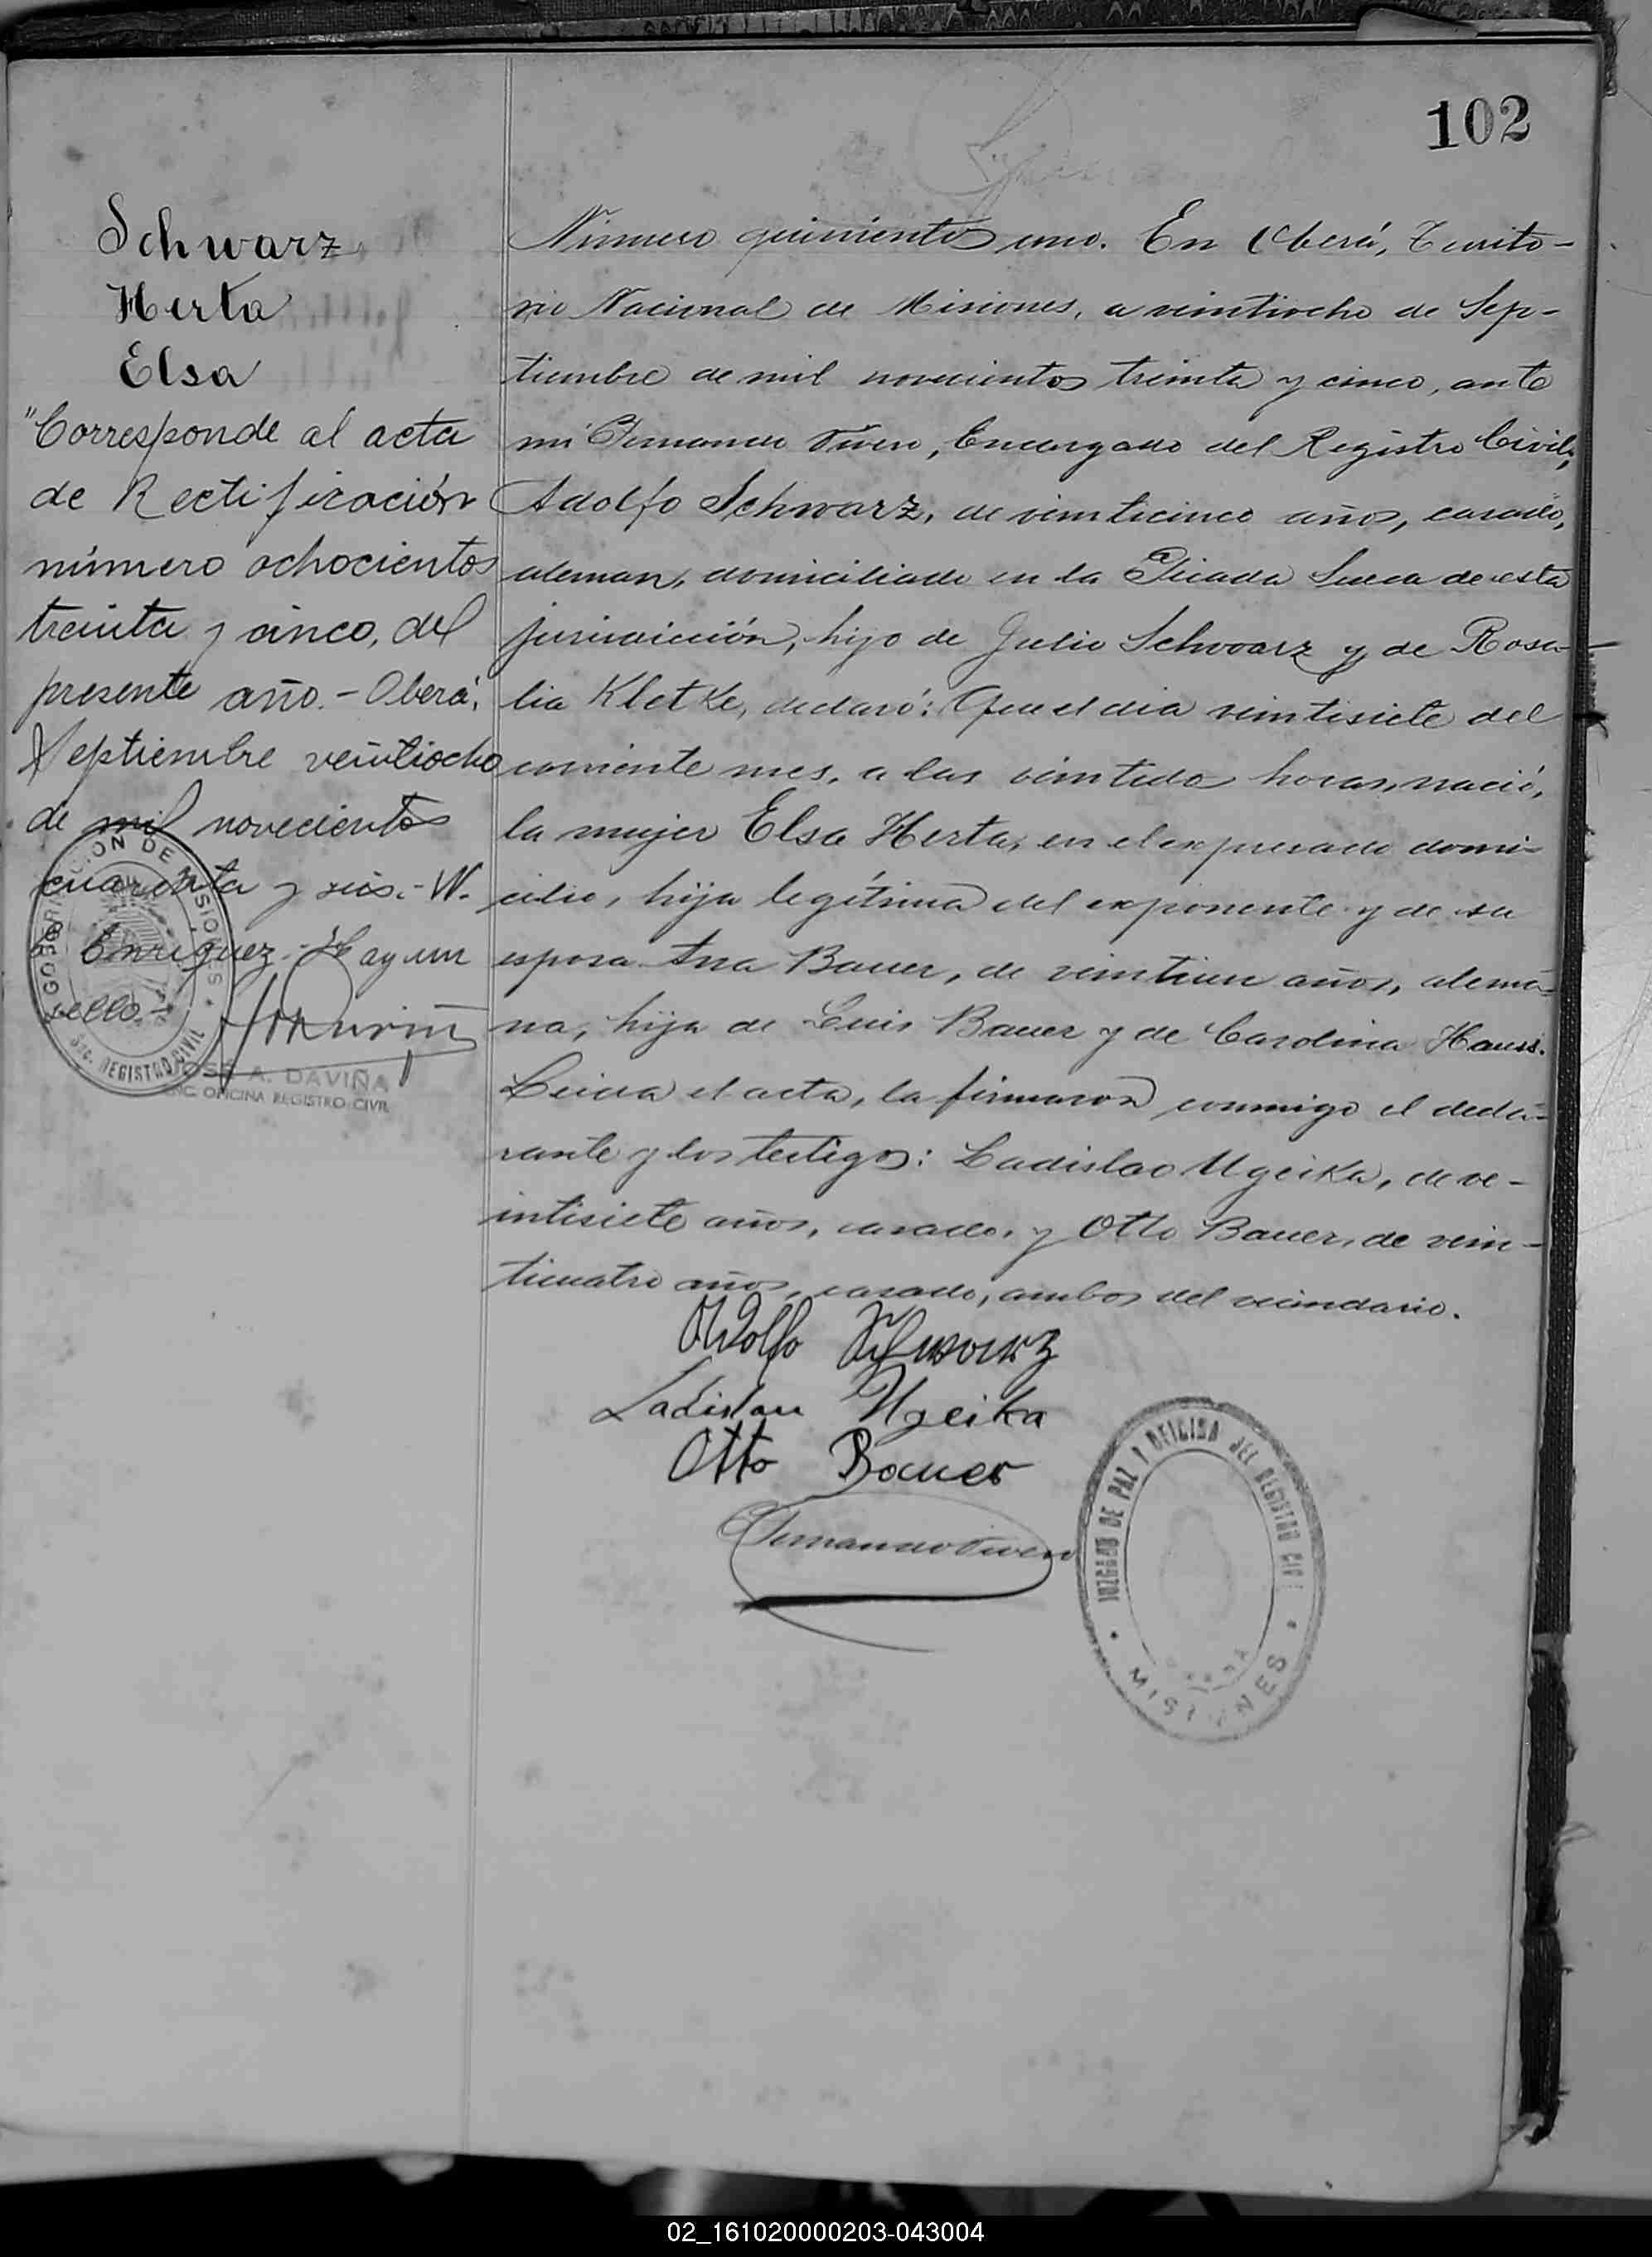 102
Schwarz
Herta
Elsa
"Corresponde al acta
de Rectificación
número ochocientos
treinta y cinco, del
presente año.- Oberá,
Septiembre veintiocho
de mil novecientos
cuarenta y seis.- W.
Enriquez.- Hay un
sello.-
GOBERNACION DE MISIONES
REGISTRO CIVIL
JOSÉ A. DAVIÑA
ENC. OFICINA REGISTRO CIVIL
Número quinientos uno. En Oberá, Territo-
rio Nacional de Misiones, a veintiocho de Sep-
tiembre de mil novecientos treinta y cinco, ante
mi Fernando Encargado del Registro Civil,
Adolfo Schwarz, de veinticinco años, casado,
aleman, domiciliado en la Picada Sueca de esta
jurisdicción, hijo de Julio Schwarz y de Rosa-
lia Kletke, declaró: Que el dia veintisiete del
corriente mes, a las veintidos horas, nació,
la mujer Elsa Herta, en el expresado domi-
cilio, hija legítima del exponente y de su
esposa Ana Bauer, de veintiun años, alema-
na, hija de Luis Bauer y de Carolina Hauss.
Leida el acta, la firmaron conmigo el decla-
rante y los testigos: Ladislao Ugeika, de ve-
intisiete años, casado, y Otto Bauer, de vein-
ticuatro años, casado, ambos del vecindario.
Adolfo Schwarz
Ladislau Ugeika
Otto Bauer
Fernando
JUZGADO DE PAZ Y OFICINA DEL REGISTRO CIVIL
MISIONES
02_161020000203-043004